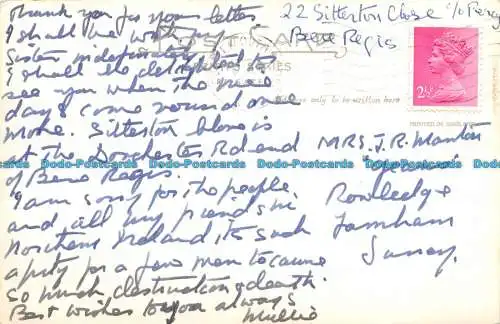 Thank you for your letter.
I shall be with my
Sister indefinitely and
I shall be delighted to
see you when the nice
days come round once
more. Sitterton Close is
at the Dorchester Rd end
of Bere Regis.
I am sorry for the people,
and all my friends in
Northern Ireland, its such
a pity for a few men to cause
so much destruction & death.
Best wishes to you always
Millie
22 Sitterton Close c/o Percy
Bere Regis
POST CARD
SERIES
only to be written here
2½P
PRINTED IN
MRS. J. R. Manton
Rowledge
Farnham
Surrey.
Dodo-Postcards Dodo-Postcards Dodo-Postcards Dodo-Postcards Dodo-Postcards Dodo-Postcards